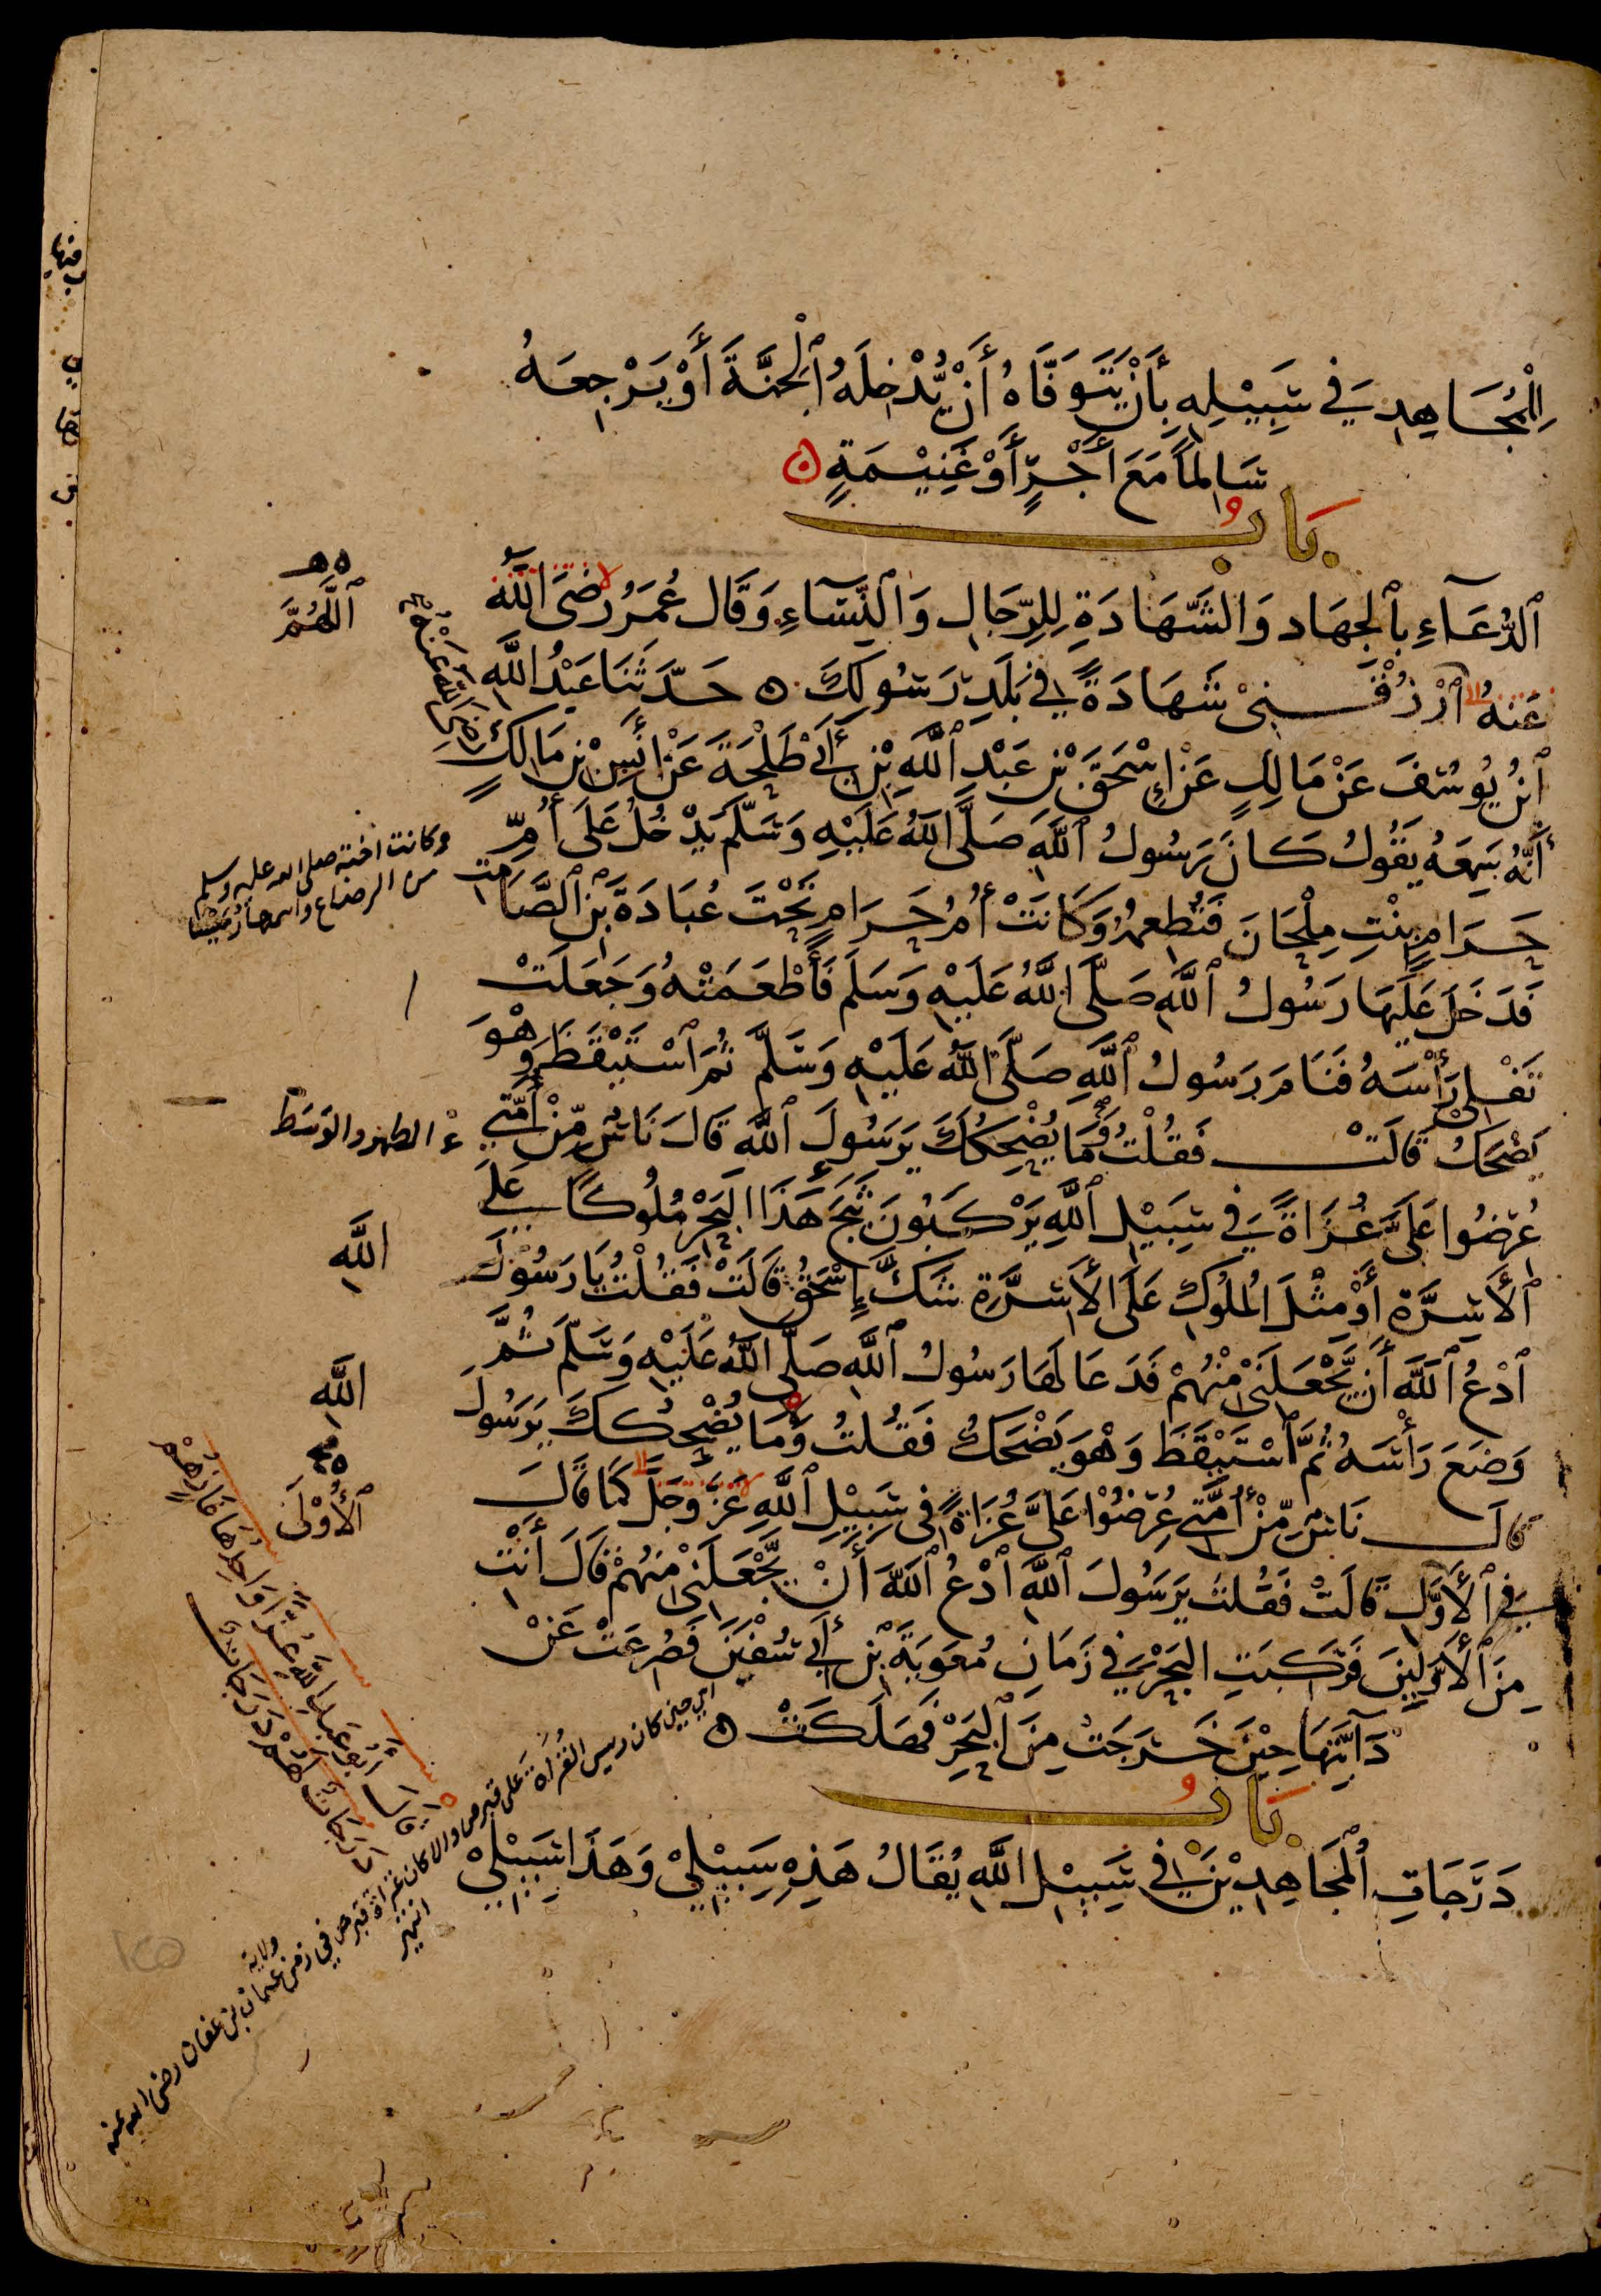 لِلْمُجَاهِدِ فِي سَبِيْلِهِ بِأَنْ يَتَوَفَّاهُ أَنْ يُّدْخِلَهُ ٱلْجَنَّةَ أَوْ يَرْجِعَهُ
سَالِمًا مَعَ أَجْرٍ أَوْ غَنِيْمَةٍ
بَابُ
ٱلدُّعَآءِ بِٱلْجِهَادِ وَالشَّهَادَةِ لِلرِّجَالِ وَٱلنِّسَآءِ وَقَالَ عُمَرُ رَضِيَ اللَّهُ
عَنْهُ ٱرْزُقْنِيْ شَهَادَةً فِي بَلَدِ رَسُولِكَ حَدَّثَنَا عَبْدُ اللَّهِ
ٱبْنُ يُوسُفَ عَنْ مَالِكٍ عَنْ إِسْحَقَ بْنِ عَبْدِ ٱللَّهِ بْنِ أَبِي طَلْحَةَ عَنْ أَنَسِ بْنِ مَالِكٍ
أَنَّهُ سَمِعَهُ يَقُولُ كَانَ رَسُولُ ٱللَّهِ صَلَّى اللَّهُ عَلَيْهِ وَسَلَّمَ يَدْخُلُ عَلَى أُمِّ
حَرَامٍ بِنْتِ مِلْحَانَ فَتُطْعِمُهُ وَكَانَتْ أُمُّ حَرَامٍ تَحْتَ عُبَادَةَ بْنِ ٱلصَّامِت
فَدَخَلَ عَلَيْهَا رَسُولُ ٱللَّهِ صَلَّى اللَّهُ عَلَيْهِ وَسَلَّمَ فَأَطْعَمَتْهُ وَجَعَلَتْ
تَفْلِي رَأْسَهُ فَنَامَ رَسُولُ ٱللَّهِ صَلَّى اللَّهُ عَلَيْهِ وَسَلَّمَ ثُمَّ ٱسْتَيْقَظَ وَهْوَ
يَضْحَكُ قَالَتْ فَقُلْتُ وَمَا يُضْحِكُكَ يَرَسُولَ ٱللَّهِ قَالَ نَاسٌ مِّنْ أُمَّتِي
عُرِضُوا عَلَيَّ غُزَاةً فِي سَبِيْلِ ٱللَّهِ يَرْكَبُونَ ثَبَجَ هَذَا الْبَحْرِ مُلُوكًا عَلَى
ٱلْأَسِرَّةِ أَوْ مِثْلَ الْمُلُوكِ عَلَى الْأَسِرَّةِ شَكَّ إِسْحَقُ قَالَتْ فَقُلْتُ يَا رَسُوْلَ
ٱدْعُ ٱللَّهَ أَنْ يَّجْعَلَنِي مِنْهُمْ فَدَعَا لَهَا رَسُولُ ٱللَّهِ صَلَّى اللَّهُ عَلَيْهِ وَسَلَّمَ ثُمَّ
وَضَعَ رَأْسَهُ ثُمَّ ٱسْتَيْقَظَ وَهْوَ يَضْحَكُ فَقُلْتُ وَمَا يُضْحِكُكَ يَرَسُولَ
قَالَ نَاسٌ مِّنْ أُمَّتِي عُرِضُوْا عَلَيَّ غُزَاةً فِي سَبِيْلِ ٱللَّهِ عَزَّ وَجَلَّ كَمَا قَالَ
فِي ٱلْأَوَّلِ قَالَتْ فَقُلْتُ يَرَسُولَ ٱللَّهِ ٱدْعُ ٱللَّهَ أَنْ يَّجْعَلَنِي مِنْهُمْ قَالَ أَنْتِ
مِنَ ٱلْأَوَّلِيْنَ فَرَكِبَتِ الْبَحْرَ فِي زَمَانِ مُعَوِيَةَ بْنِ أَبِي سُفْيَنَ فَصُرِعَتْ عَنْ
دَآبَّتِهَا حِيْنَ خَرَجَتْ مِنَ ٱلْبَحْرِ فَهَلَكَتْ
بَابُ
دَرَجَاتِ ٱلْمُجَاهِدِيْنَ فِي سَبِيْلِ اللَّهِ يُقَالُ هَذِهِ سَبِيْلِيْ وَهَذَا سَبِيْلِيْ
ٱللَّهُمَّ
رَضِيَ اللَّهُ عَنْهُ
وكانت اخته صلى الله عليه وسلم
من الرضاع واسمها
الظهر والوسط
اللَّهِ
اللَّهِ
ٱلْأُوْلَى
قَالَ أَبُو عَبْدِ اللَّهِ غُزًّا وَاحِدُهَا غَازٍ هُمْ
دَرَجَاتٌ لَهُمْ دَرَجَاتٌ
اي حين كان رييس الغزاة على قبرص والا كان غزاة قبرص في زمن ولاية عثمان بن عفان رضي الله عنه